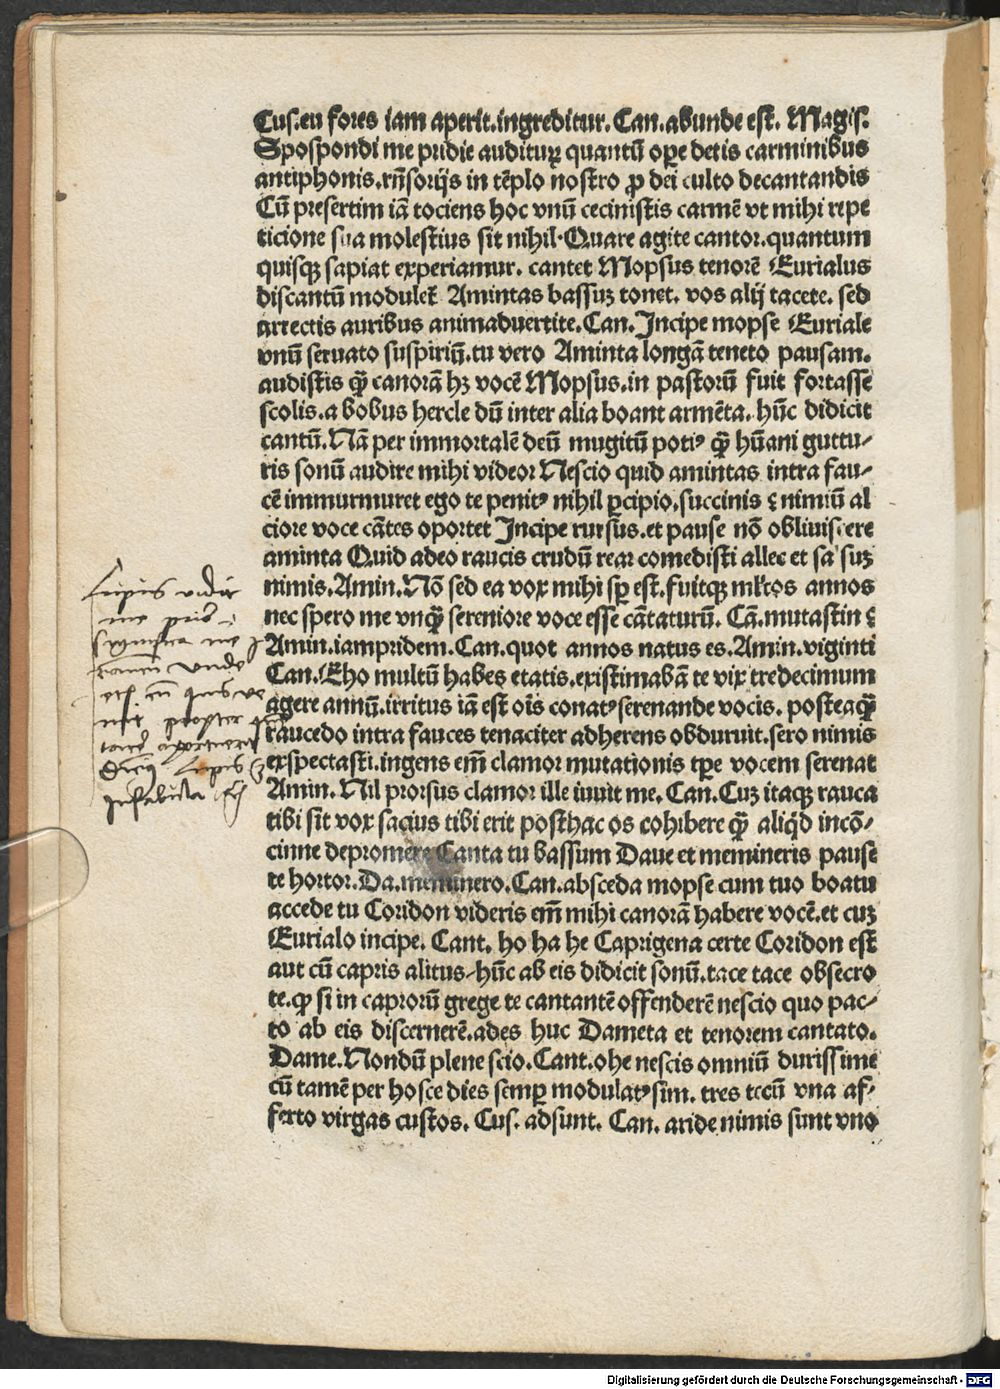 Cus. eu fores iam aperit. ingreditur. Can. abunde est. Magis.
Spospondi me pridie auditurꝝ quantū oꝑe detis carminibus
antiphonis. rñsorijs in tēplo nostro ꝓ dei culto decantandis
Cū presertim iā tociens hoc vnū cecinistis carmē vt mihi repe
ticione sua molestius sit nihil. Quare agite cantor. quantum
quisqꝫ sapiat experiamur. cantet Mopsus tenorē Eurialus
discantū modulet᷑ Amintas bassuꝫ tonet. vos alij tacete. sed
arrectis auribus animaduertite. Can. Incipe mopse Euriale
vnū seruato suspiriū. tu vero Aminta longā teneto pausam.
audistis ꝙ̄ canorā hꝫ vocē Mopsus. in pastorū fuit fortasse
scolis. a bobus hercle dū inter alia boant armēta. hūc didicit
cantū. Nā per immortalē deū mugitū potiꝰ ꝙ̄ hūani guttu⸗
ris sonū audire mihi videor Nescio quid amintas intra fau⸗
cē immurmuret ego te penitꝰ nihil ꝑcipio. succinis ⁊ nimiū al
ciore voce cātes oportet Incipe rursus. et pause nō obliuiscere
aminta Quid adeo raucis crudū rear comedisti allec et sa suꝫ
nimis. Amin. Nō sed ea vox mihi sꝑ est. fuitqꝫ ml̄tos annos
nec spero me vnqꝫ̄ sereniore voce esse cātaturū. Cā. mutastin ⁊
Amin. iampridem. Can. quot annos natus es. Amin. viginti
Can. Eho multū habes etatis. existimabā te vix tredecimum
agere annū. irritus iā est oīs conatꝰ serenande vocis. posteaqꝫ̄
raucedo intra fauces tenaciter adherens obduruit. sero nimis
exspectasti. ingens em̄ clamor mutationis tꝑe vocem serenat
Amin. Nil prorsus clamor ille iuuit me. Can. Cuꝫ itaqꝫ rauca
tibi sit vox sacius tibi erit posthac os cohibere ꝙ̄ aliqͥd incō⸗
cinne depromere Canta tu bassum Daue et memineris pause
te hortor. Da. meminero. Can. absceda mopse cum tuo boatu
accede tu Coridon videris em̄ mihi canorā habere vocē. et cuꝫ
Eurialo incipe. Cant. ho ha he Caprigena certe Coridon est
aut cū capris alitus⸗hūc ab eis didicit sonū. tace tace obsecro
te. ꝙ si in caprorū grege te cantantē offenderē nescio quo pac⸗
to ab eis discernerē. ades huc Dameta et tenorem cantato.
Dame. Nondū plene scio. Cant. ohe nescis omniū durissime
cū tamē per hosce dies semꝑ modulatꝰ sim. tres tecū vna af⸗
ferto virgas custos. Cus. adsunt. Can. aride nimis sunt vno
Lupus
me
me
vnde
propter
Lupus
in fabula
Digitalisierung gefördert durch die Deutsche Forschungsgemeinschaft - DFG